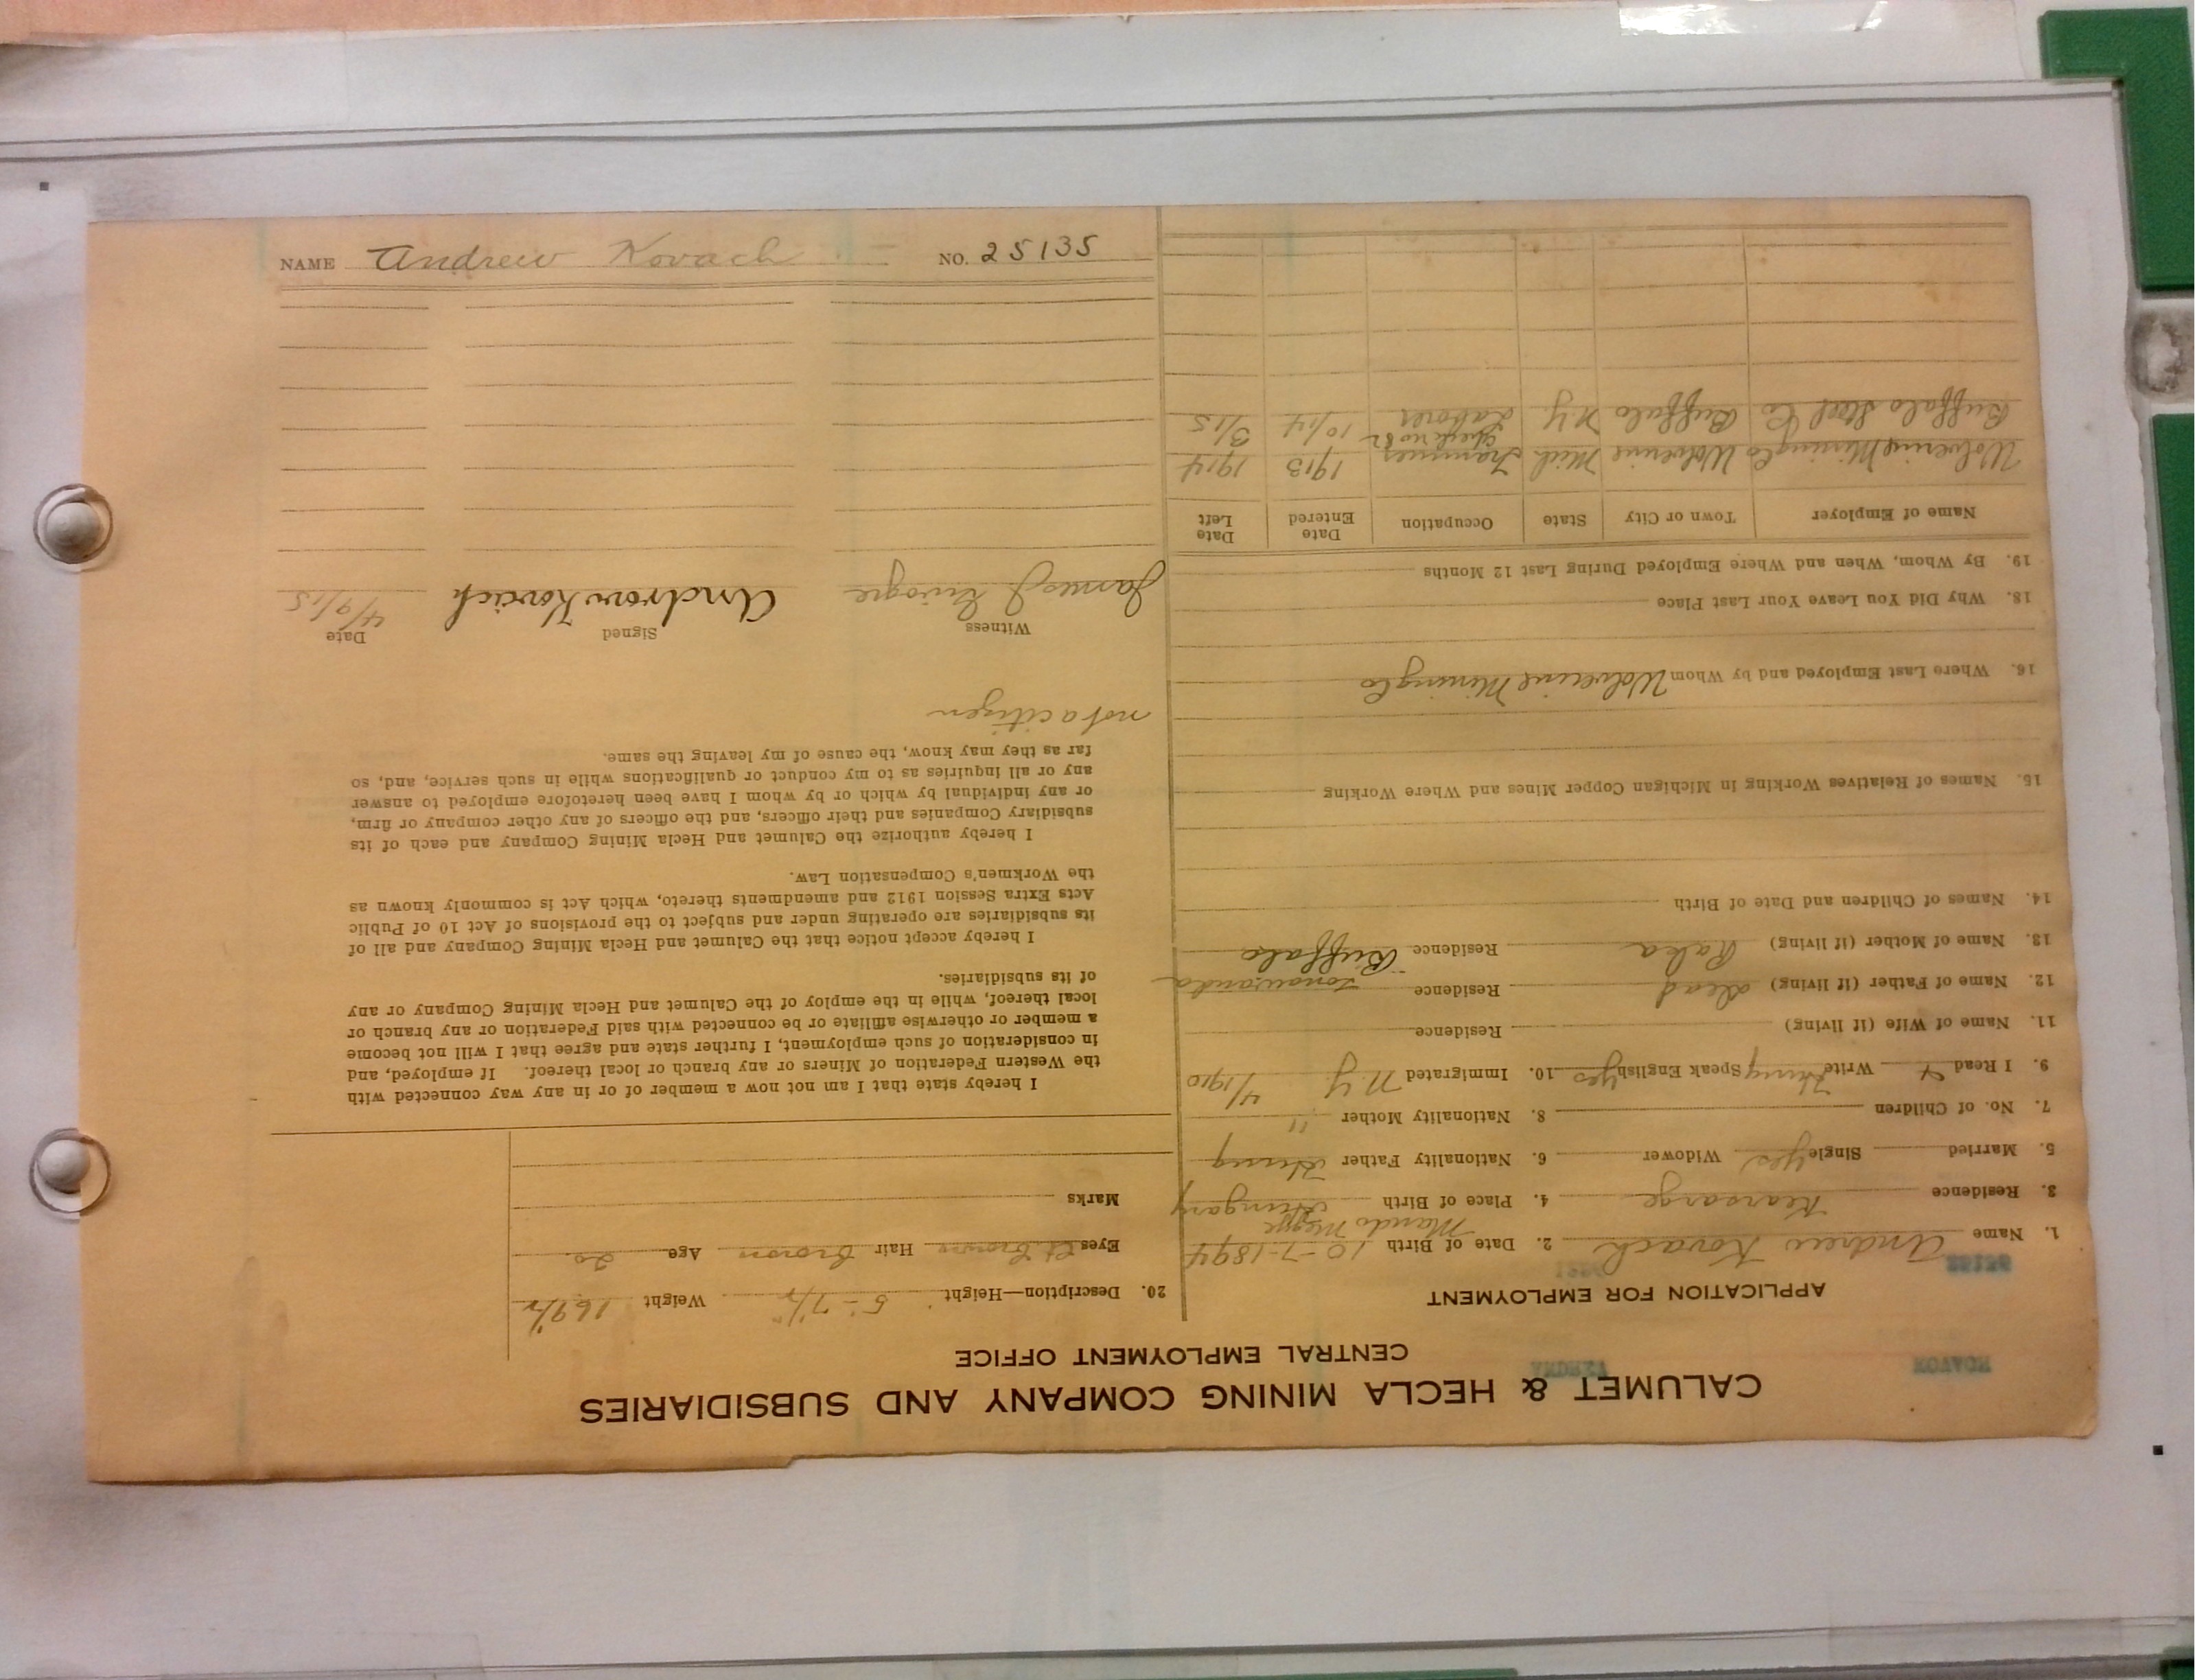 CALUMET & HECLA MINING COMPANY AND SUBSIDIARIES
CENTRAL EMPLOYMENT OFFICE
APPLICATION FOR EMPLOYMENT
1. Name Andrew Kovach 2. Date of Birth 10-7-1894
3. Residence Kearsarge 4. Place of Birth Hungary
5. Married Single yes Widower 6. Nationality Father Hung
7. No. of Children 8. Nationality Mother "
9. I Read Write Hung Speak English yes 10. Immigrated N.Y. 4/1910
11. Name of Wife (if living) Residence
12. Name of Father (if living) Dead Residence Tonawanda
13. Name of Mother (if living) Residence Buffalo
14. Names of Children and Date of Birth
15. Names of Relatives Working in Michigan Copper Mines and Where Working
16. Where Last Employed and by Whom Wolverine Mining Co
18. Why Did You Leave Your Last Place
19. By Whom, When and Where Employed During Last 12 Months
Name of Employer Town or City State Occupation Date Entered Date Left
Wolverine Mining Co Wolverine Mich Trammer 1913 1914
Buffalo Steel Co Buffalo N.Y. Laborer 10/14 3/15
20. Description—Height 5-7 1/2" Weight 169 1/2
Eyes Lt. Brown Hair Brown Age 20
Marks
I hereby state that I am not now a member of or in any way connected with
the Western Federation of Miners or any branch or local thereof. If employed, and
in consideration of such employment, I further state and agree that I will not become
a member or otherwise affiliate or be connected with said Federation or any branch or
local thereof, while in the employ of the Calumet and Hecla Mining Company or any
of its subsidiaries.
I hereby accept notice that the Calumet and Hecla Mining Company and all of
its subsidiaries are operating under and subject to the provisions of Act 10 of Public
Acts Extra Session 1912 and amendments thereto, which Act is commonly known as
the Workmen's Compensation Law.
I hereby authorize the Calumet and Hecla Mining Company and each of its
subsidiary Companies and their officers, and the officers of any other company or firm,
or any individual by which or by whom I have been heretofore employed to answer
any or all inquiries as to my conduct or qualifications while in such service, and, so
far as they may know, the cause of my leaving the same.
not a citizen
Witness Signed Date
James J. Androw Kovach 4/9/15
NAME Andrew Kovach NO. 25135